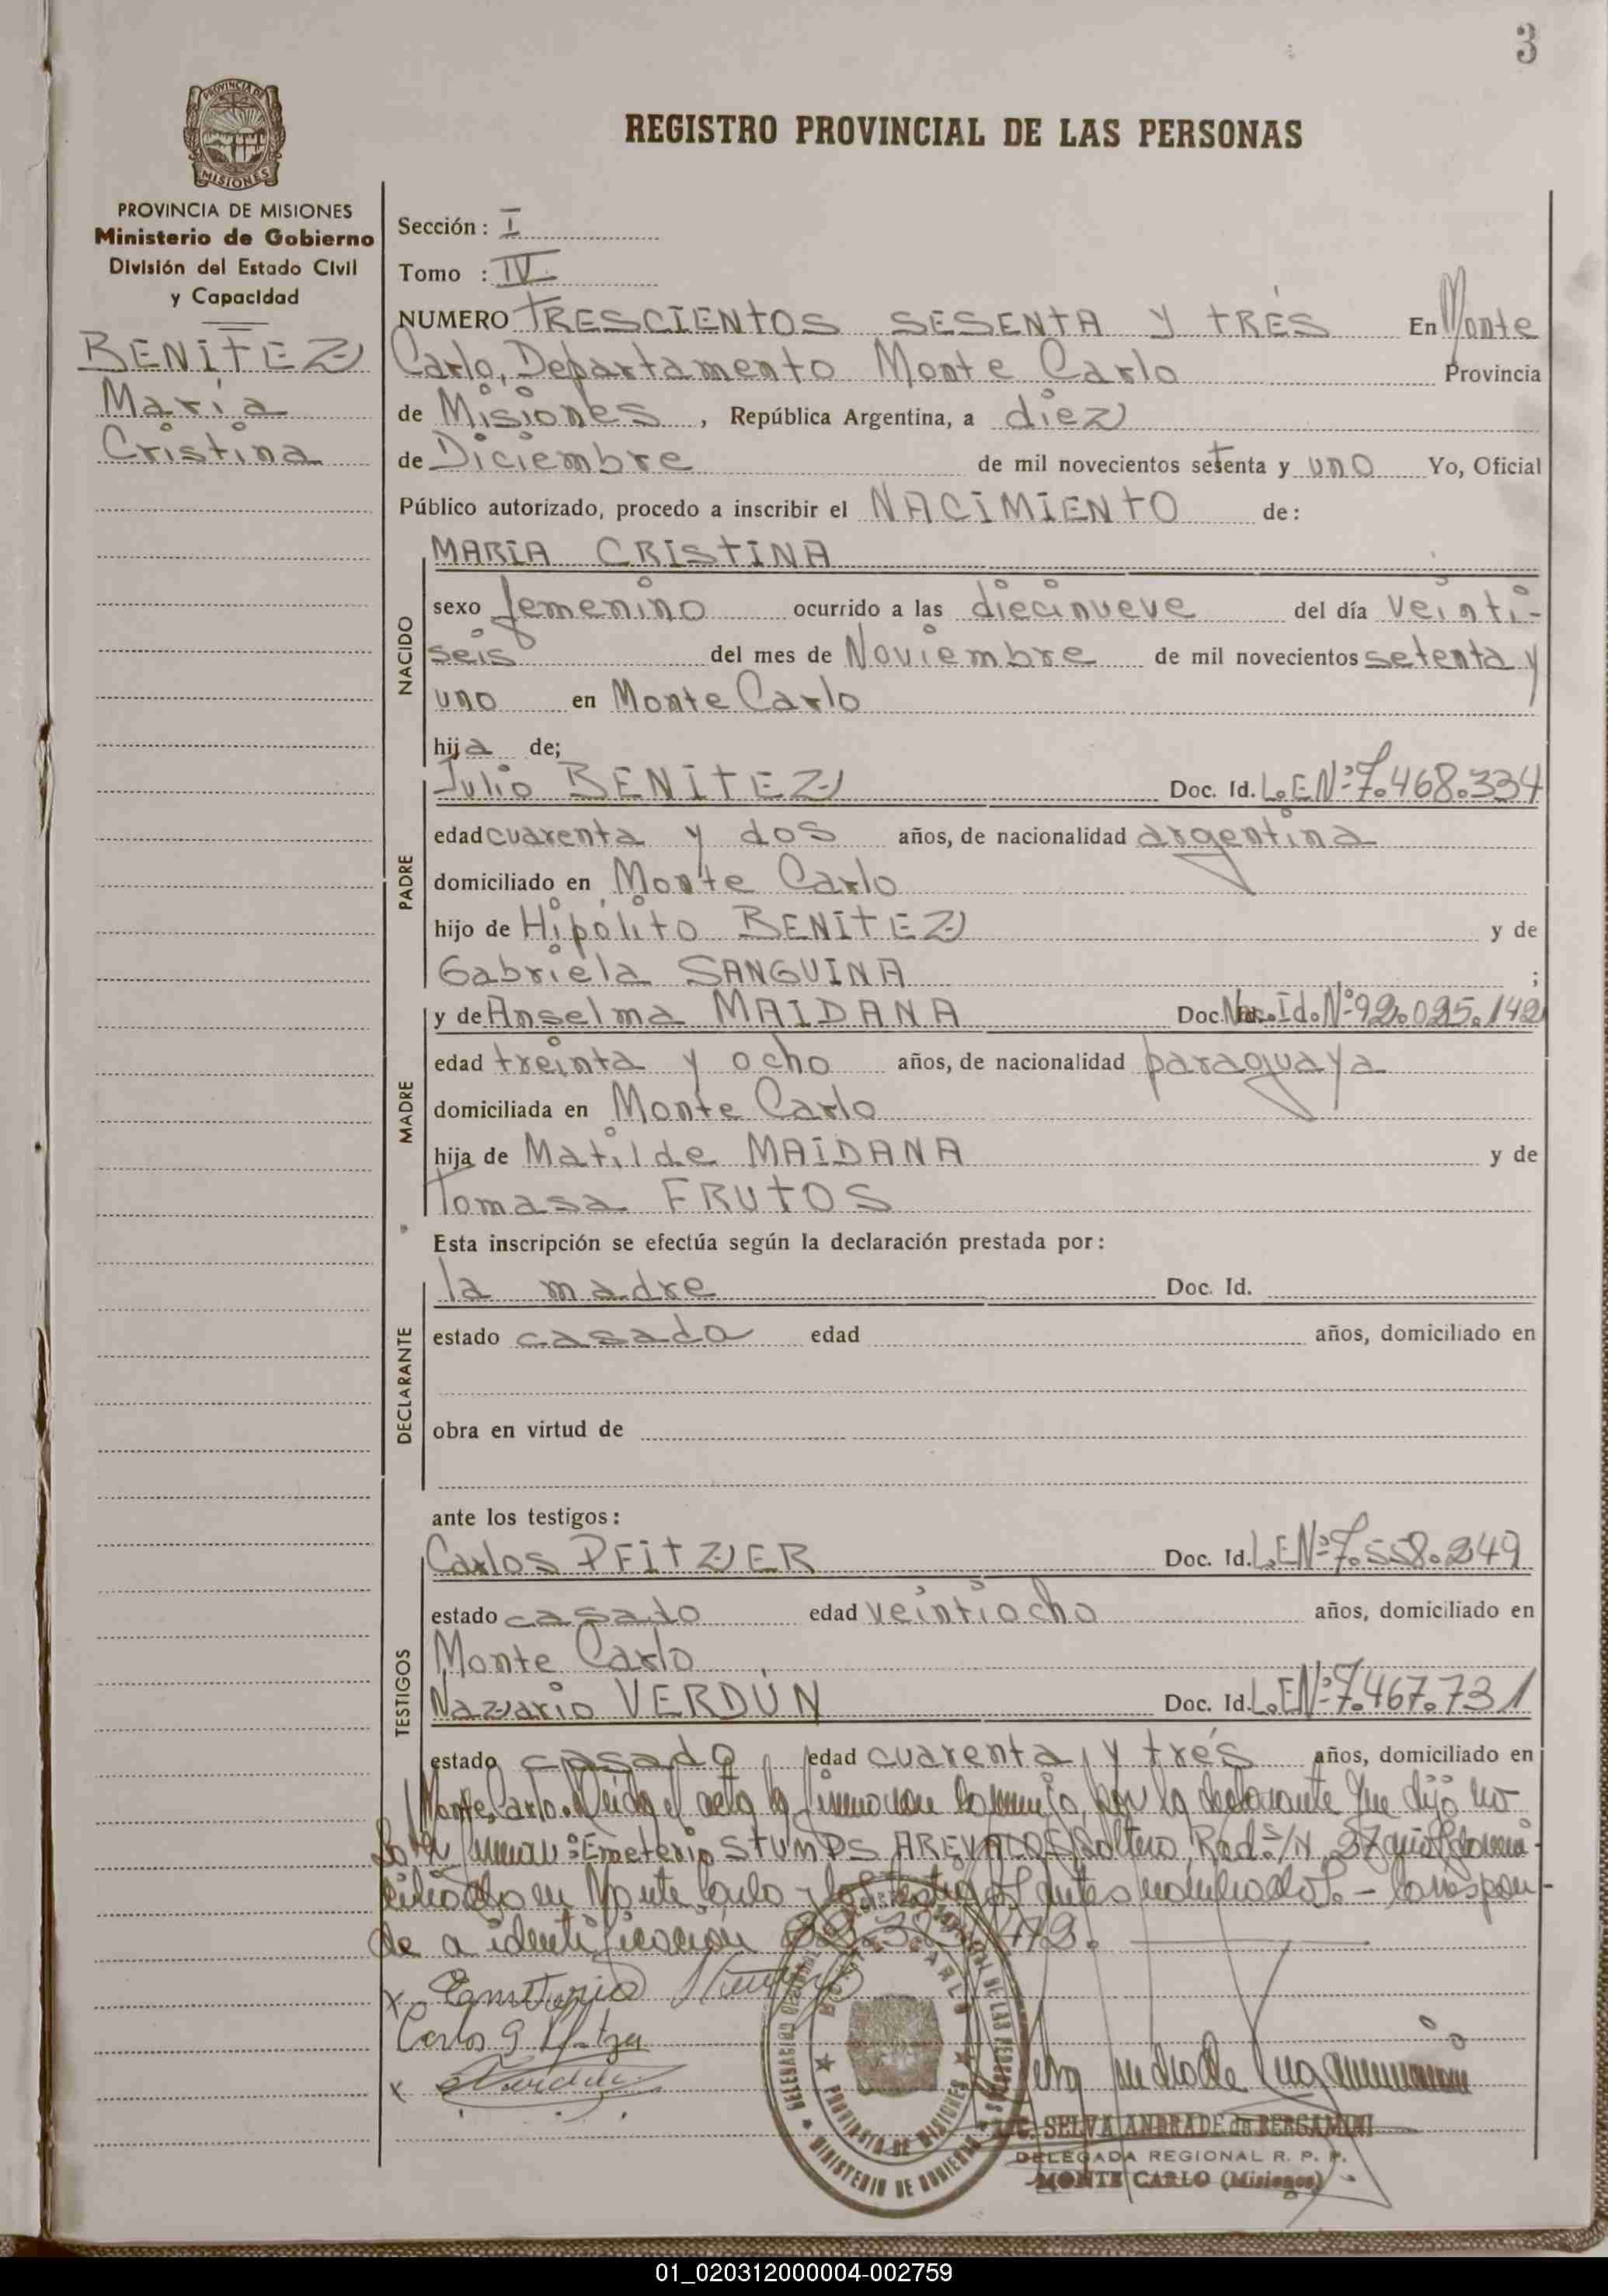 3
PROVINCIA DE
MISIONES
REGISTRO PROVINCIAL DE LAS PERSONAS
PROVINCIA DE MISIONES
Ministerio de Gobierno
División del Estado Civil
y Capacidad
BENÍTEZ
María
Cristina
Sección: I
Tomo : IV.
NUMERO TRESCIENTOS SESENTA Y TRÉS En Monte
Carlo, Departamento Monte Carlo Provincia
de Misiones, República Argentina, a diez
de Diciembre de mil novecientos setenta y uno Yo, Oficial
Público autorizado, procedo a inscribir el NACIMIENTO de:
NACIDO
MARIA CRISTINA
sexo femenino ocurrido a las diecinueve del día veinti-
seis del mes de Noviembre de mil novecientos setenta y
uno en Monte Carlo
hija de;
PADRE
Julio BENÍTEZ Doc. Id. L.E.Nº 7.468.334
edad cuarenta y dos años, de nacionalidad argentina
domiciliado en Monte Carlo
hijo de Hipólito BENÍTEZ y de
Gabriela SANGUINA ;
MADRE
y de Anselma MAIDANA Doc. Id. Nº 92.025.142
edad treinta y ocho años, de nacionalidad paraguaya
domiciliada en Monte Carlo
hija de Matilde MAIDANA y de
Tomasa FRUTOS
Esta inscripción se efectúa según la declaración prestada por:
DECLARANTE
la madre Doc. Id.
estado casada edad años, domiciliado en
obra en virtud de
ante los testigos:
TESTIGOS
Carlos PFITZER Doc. Id. L.E.Nº 7.558.249
estado casado edad veintiocho años, domiciliado en
Monte Carlo
Nazario VERDÚN Doc. Id. L.E.Nº 7.467.731
estado casado edad cuarenta y trés años, domiciliado en
Monte Carlo. Leída el acta la firmaron conmigo, por la declarante que dijo no
firmar: Emeterio STUMPS AREVALOS, soltero, Céd. S/N, 27 años, domi-
ciliado en Monte Carlo y los testigos antes nombrados. - Correspon-
de a identificación 22.
Carlos
DELEGACION REGIONAL
MONTE CARLO
PROVINCIA DE MISIONES
MINISTERIO DE GOBIERNO
SELVA ANDRADE de BERGAMINI
DELEGADA REGIONAL R. P. P.
MONTE CARLO (Misiones)
01_020312000004-002759